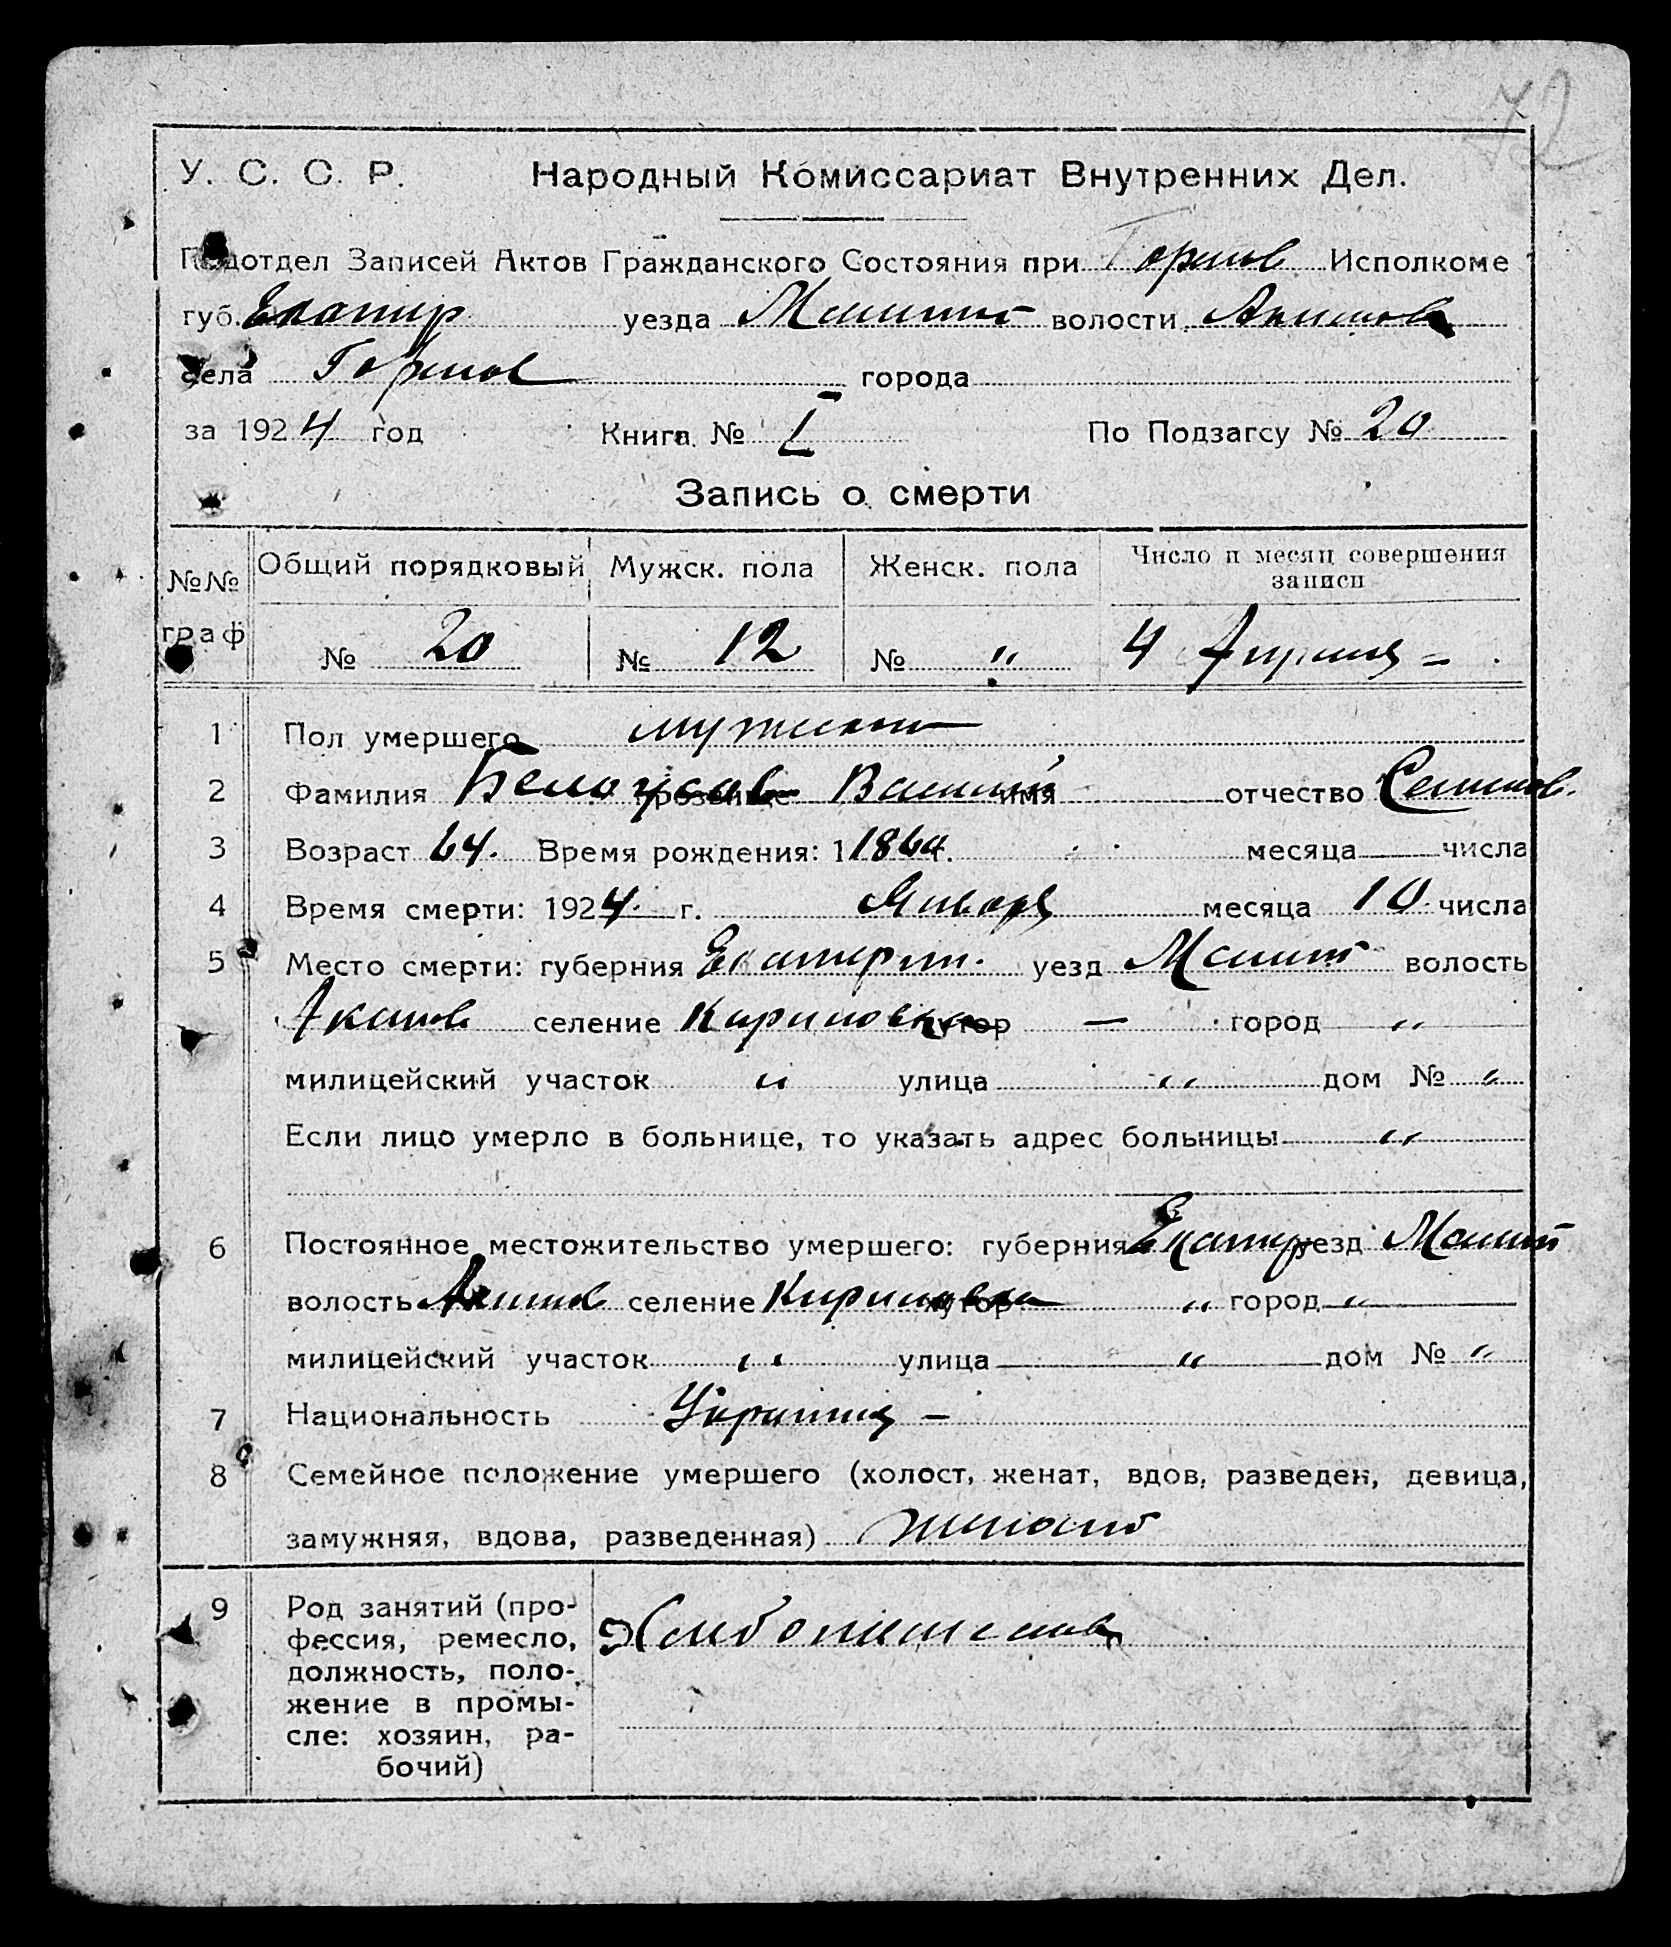 72
У. С. С. Р. Народный Комиссариат Внутренних Дел.
Подотдел Записей Актов Гражданского Состояния при Горнов Исполкоме
губ. Екатер уезда Мелитоп волости Акимов
села Горнов города
за 1924 год Книга № I По Подзагсу № 20
Запись о смерти
№№ граф Общий порядковый Мужск. пола Женск. пола Число и месяц совершения
записи
№ 20 № 12 № " 4 Апреля
1 Пол умершего мужской
2 Фамилия Белоусов прозвище Василий имя отчество Семенов.
3 Возраст 64. Время рождения: 1 1860 г. месяца числа
4 Время смерти: 1924 г. Января месяца 10 числа
5 Место смерти: губерния Екатерин. уезд Мелит волость
Акимов селение Кириловка хутор — город "
милицейский участок " улица " дом № "
Если лицо умерло в больнице, то указать адрес больницы "
6 Постоянное местожительство умершего: губерния Екатер уезд Мелит
волость Акимов селение Кириловка хутор " город "
милицейский участок " улица " дом № "
7 Национальность
8 Семейное положение умершего (холост, женат, вдов, разведен, девица,
замужняя, вдова, разведенная) женат
9 Род занятий (про-
фессия, ремесло, Хлебопашество
должность, поло-
жение в промы-
сле: хозяин, ра-
бочий)